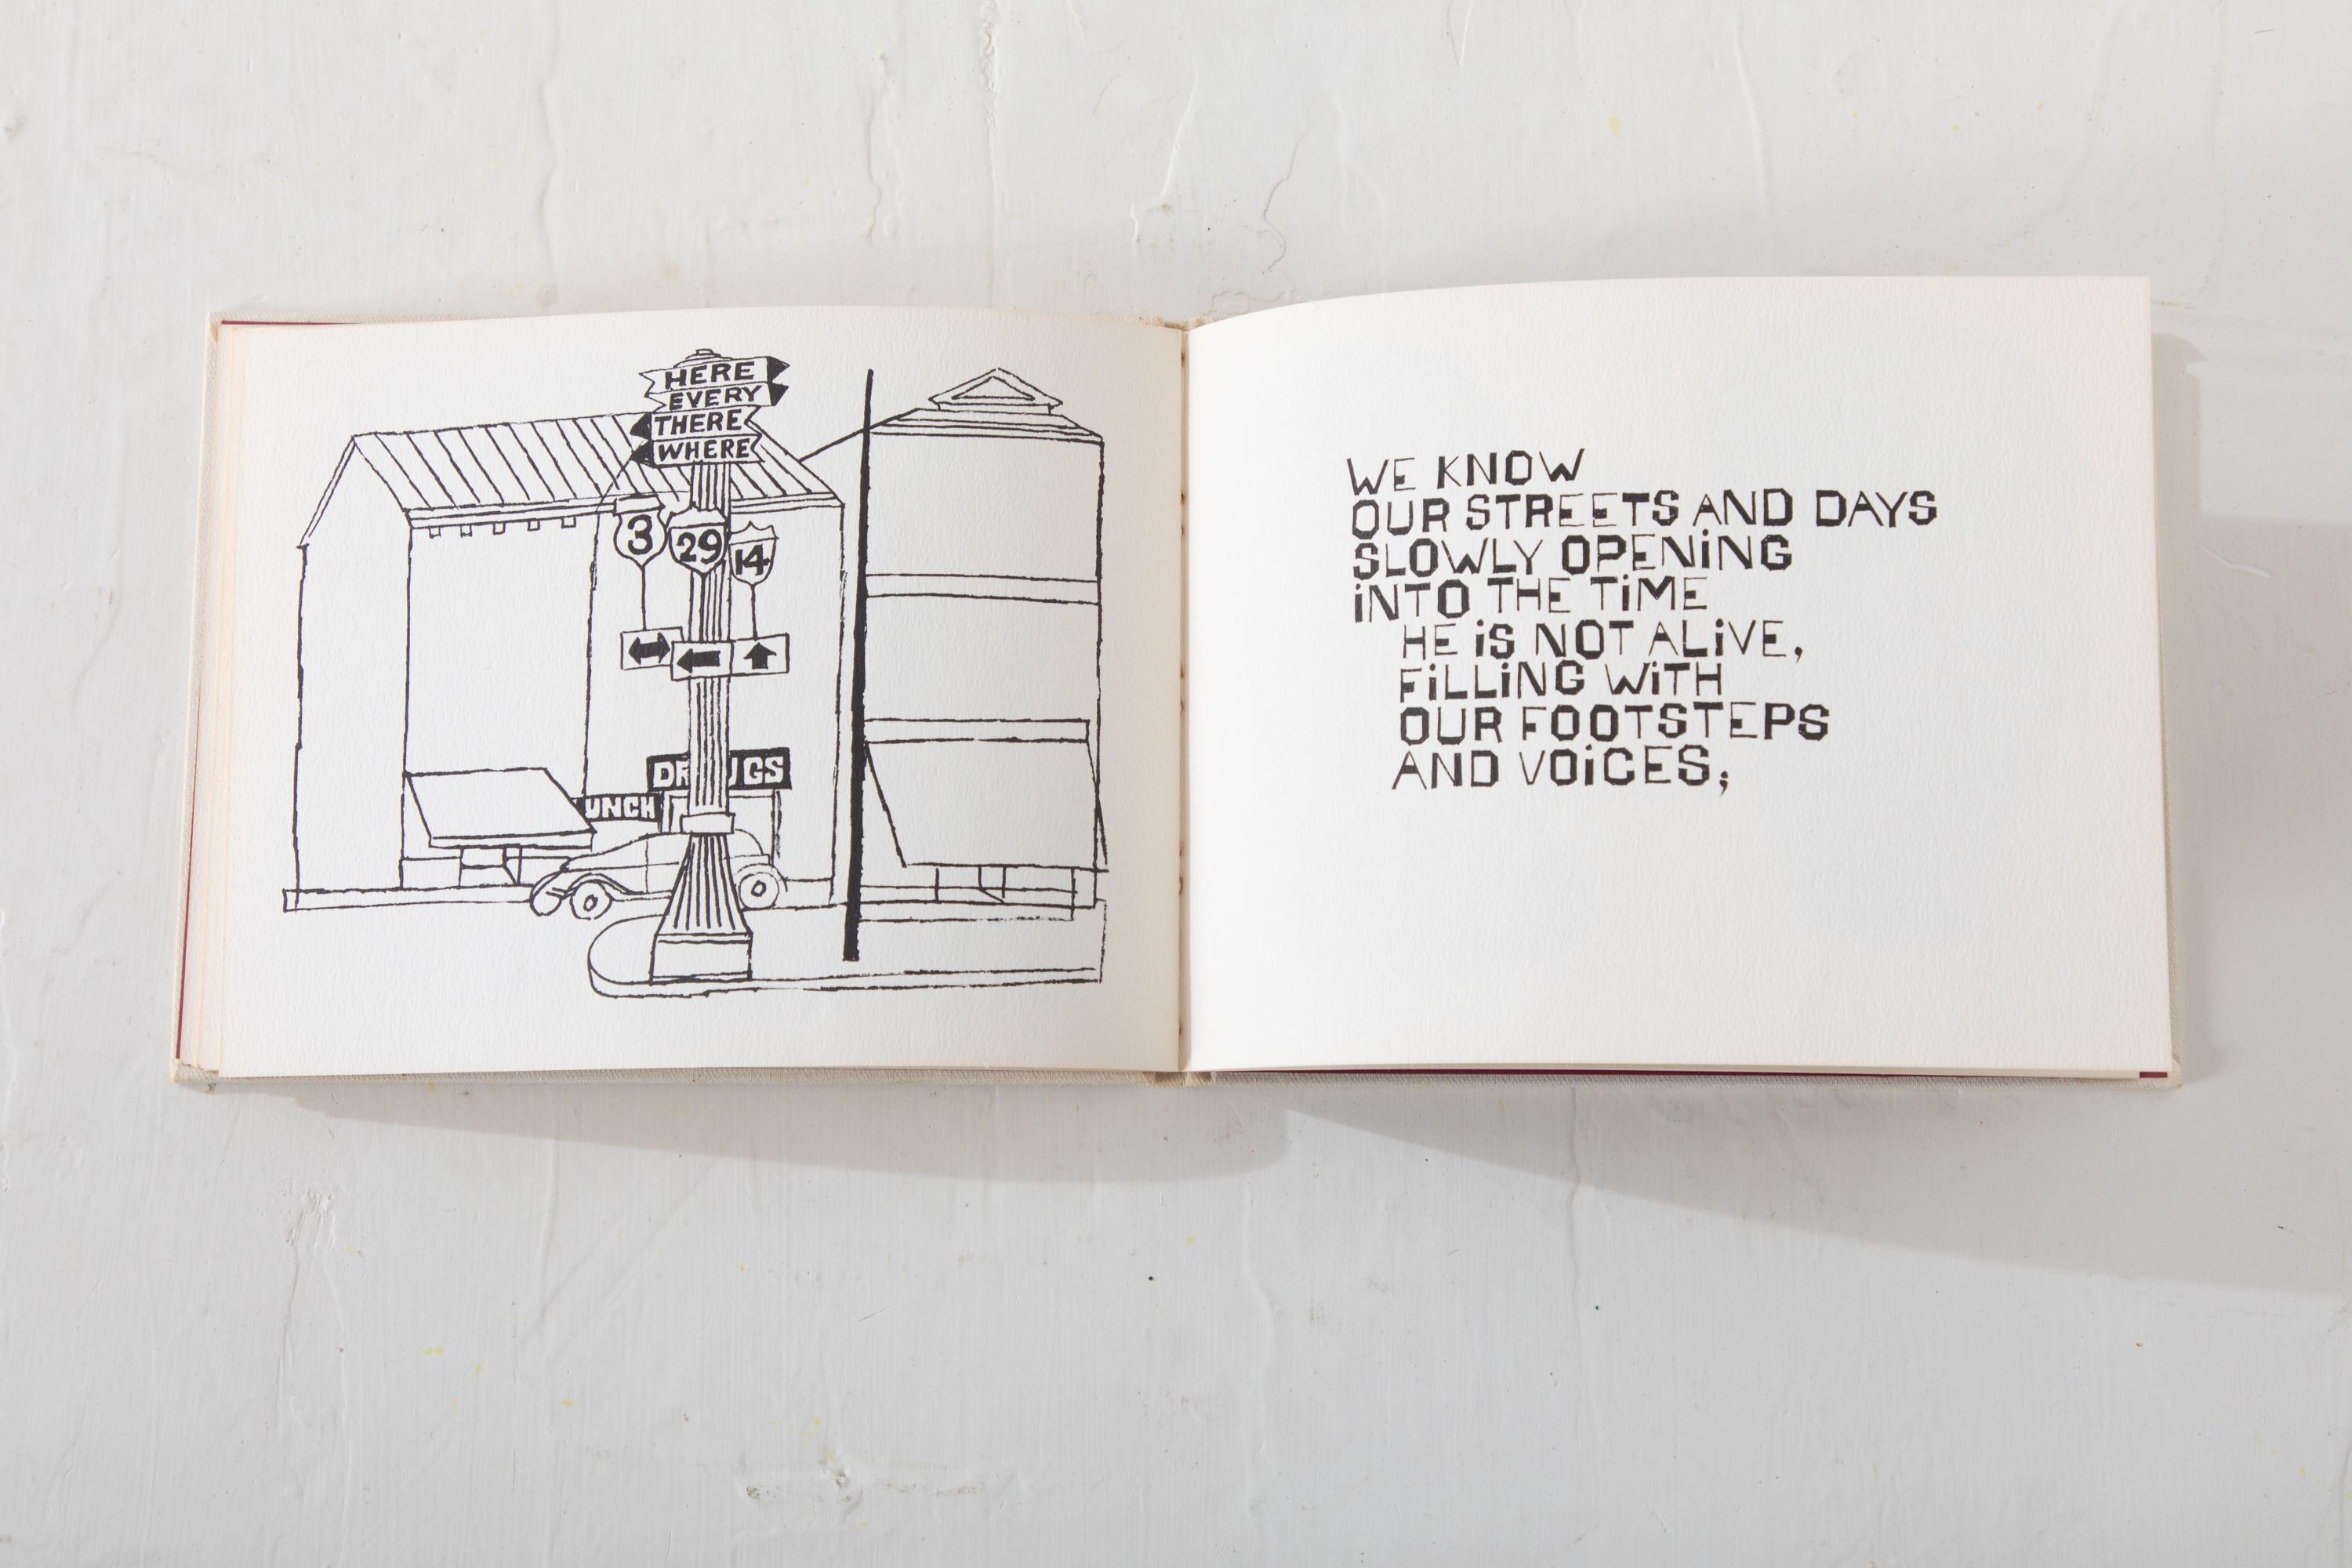 HERE
EVERY
THERE
WHERE
3
29
14
DRUGS
UNCH
WE KNOW
OUR STREETS AND DAYS
SLOWLY OPENiNG
iNTO THE TiME
HE iS NOT ALiVE,
FiLLiNG WiTH
OUR FOOTSTEPS
AND VOiCES;